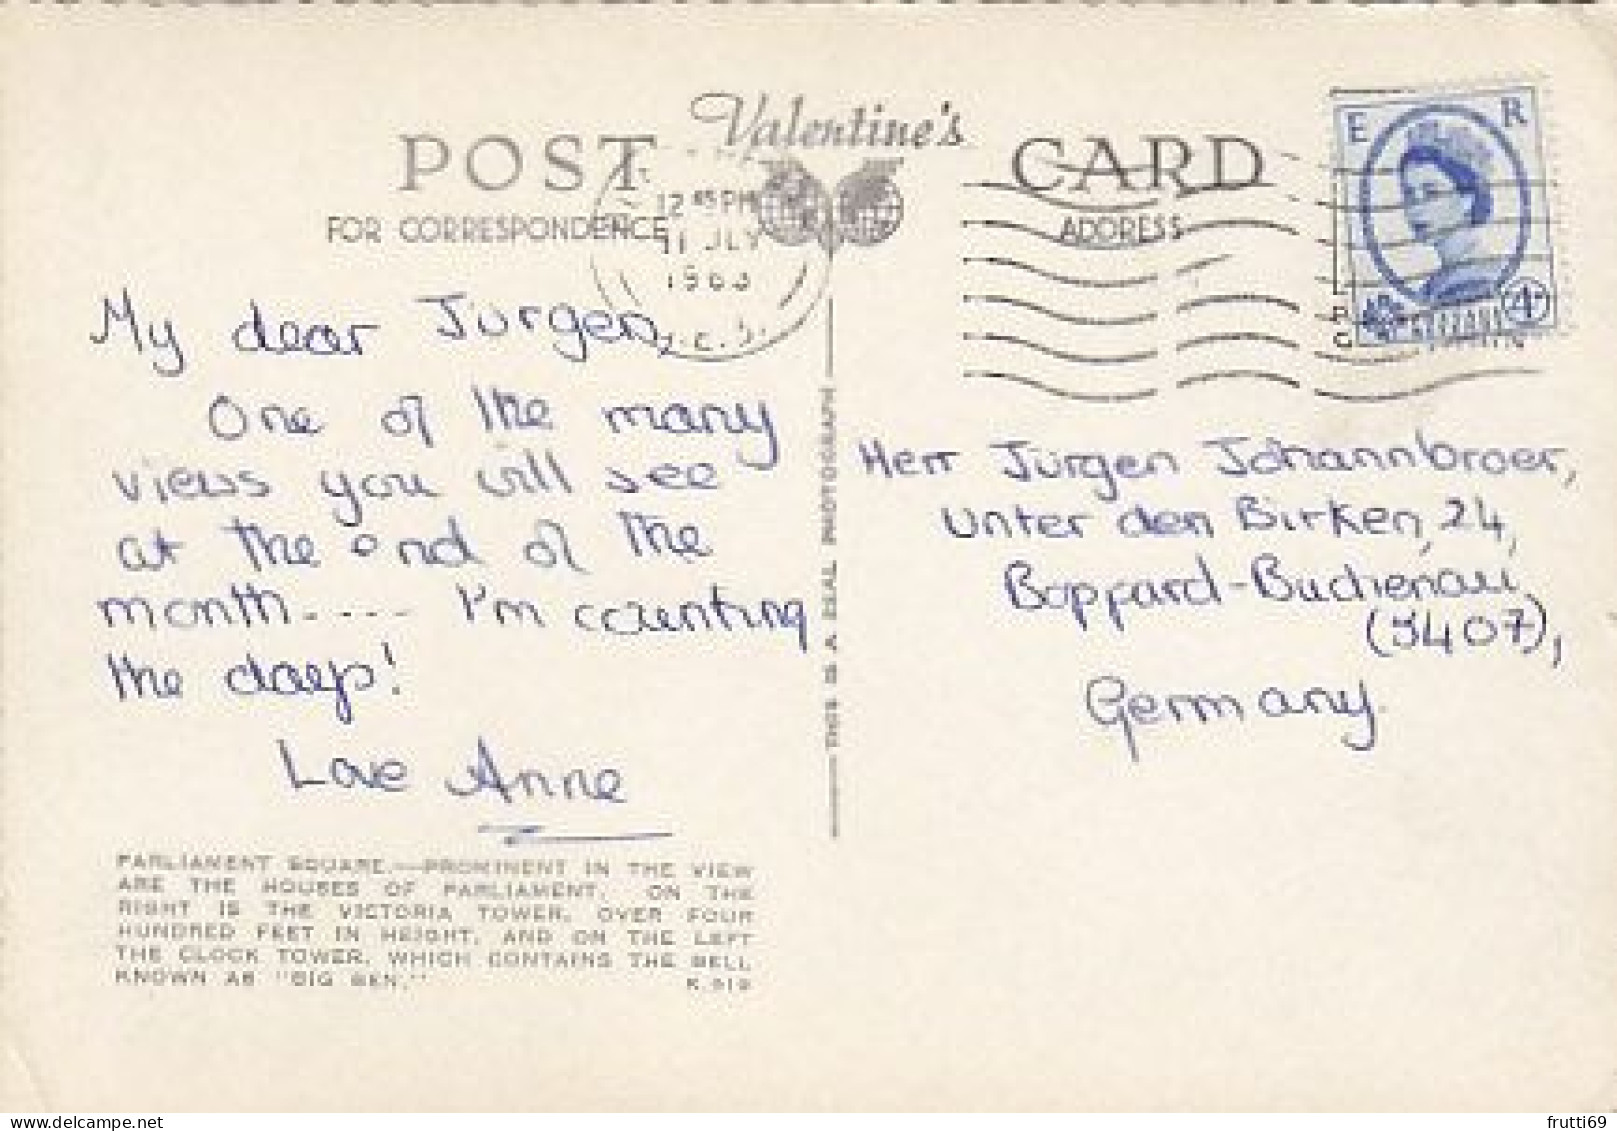 Valentine's
POST CARD
FOR CORRESPONDENCE
ADDRESS
12 45 PM
11 JLY
1963
E R
My dear Jurgen,
One of the many
views you will see
at the end of the
month..... I'm counting
the days!
Love Anne
PARLIAMENT SQUARE.—PROMINENT IN THE VIEW
ARE THE HOUSES OF PARLIAMENT. ON THE
RIGHT IS THE VICTORIA TOWER, OVER FOUR
HUNDRED FEET IN HEIGHT, AND ON THE LEFT
THE CLOCK TOWER, WHICH CONTAINS THE BELL
KNOWN AS "BIG BEN."
THIS IS A REAL PHOTOGRAPH
Herr Jürgen Johannbroer,
Unter den Birken, 24,
Boppard-Buchenau
(5407),
Germany.
frutti69